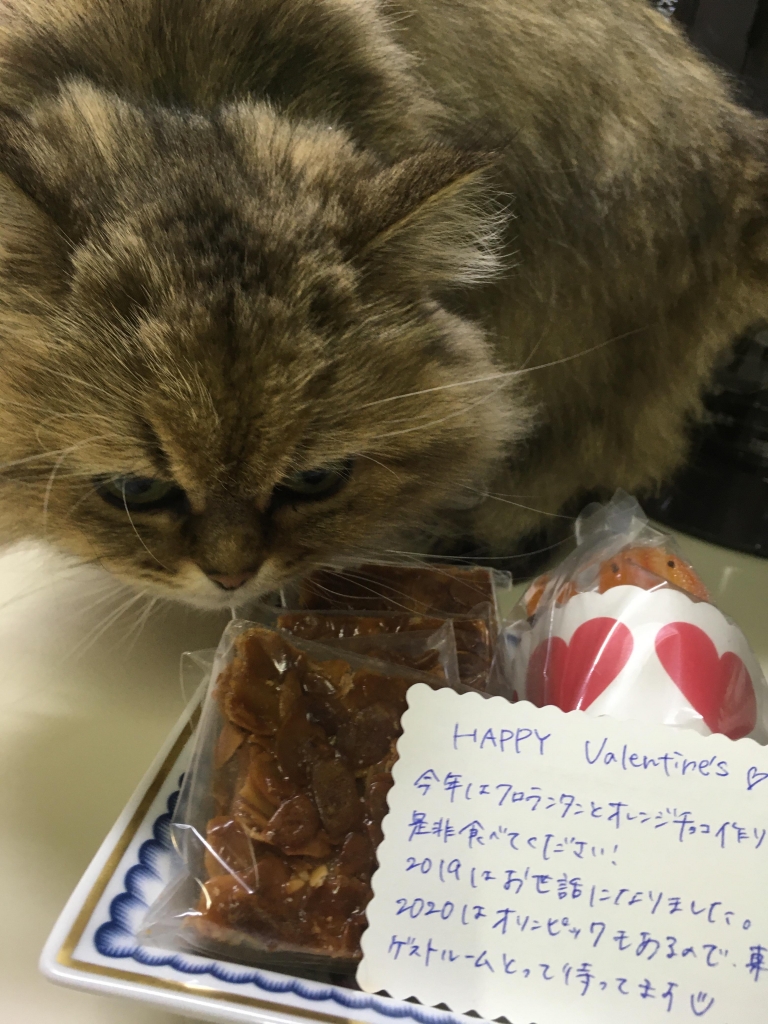 HAPPY Valentine's ♡
今年はフロランタンとオレンジチョコ作り
是非食べてください!
2019はお世話になりました。
2020はオリンピックもあるので、東
ゲストルームとって待ってます